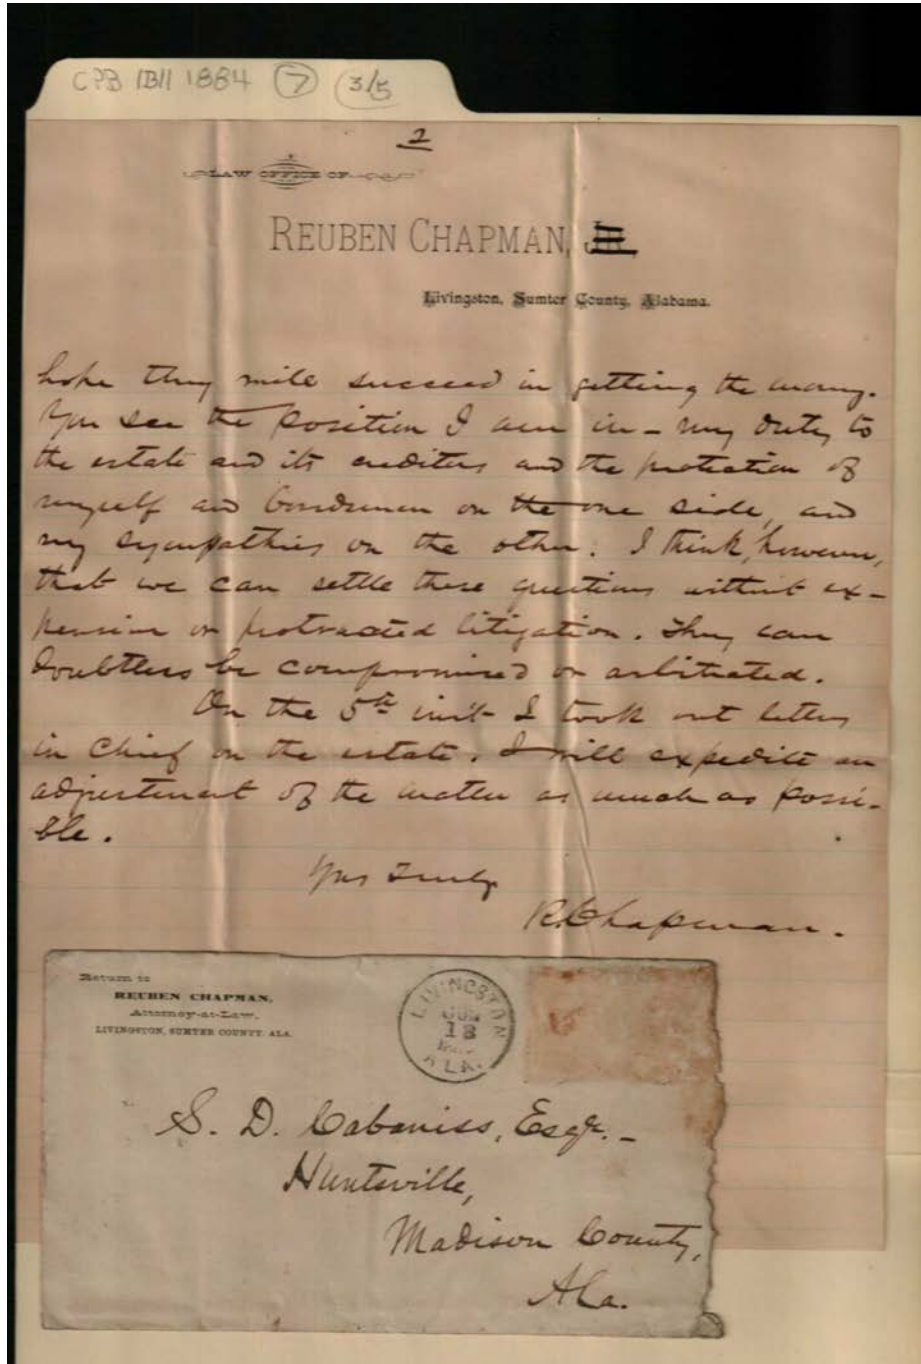 CPB IBII 1884 (7) (3/5)
2
LAW OFFICE OF
REUBEN CHAPMAN, JR,
Livingston, Sumter County, Alabama.
hope they will succeed in getting the money.
You see the position I am in - my duty to
the estate and its creditors and the protection of
myself and bondsmen on the one side, and
my sympathies on the other. I think, however,
that we can settle these questions without ex-
pensive or protracted litigation. They can
doubtless be compromised or arbitrated.
On the 5th inst I took out letters
in chief on the estate. I will expedite an
adjustment of the matter as much as possi-
ble.
Yrs Truly
R. Chapman.
Return to
REUBEN CHAPMAN,
Attorney-at-Law,
LIVINGSTON, SUMTER COUNTY, ALA.
LIVINGSTON
18
ALA.
S. D. Cabaniss, Esqr. -
Huntsville,
Madison County,
Ala.